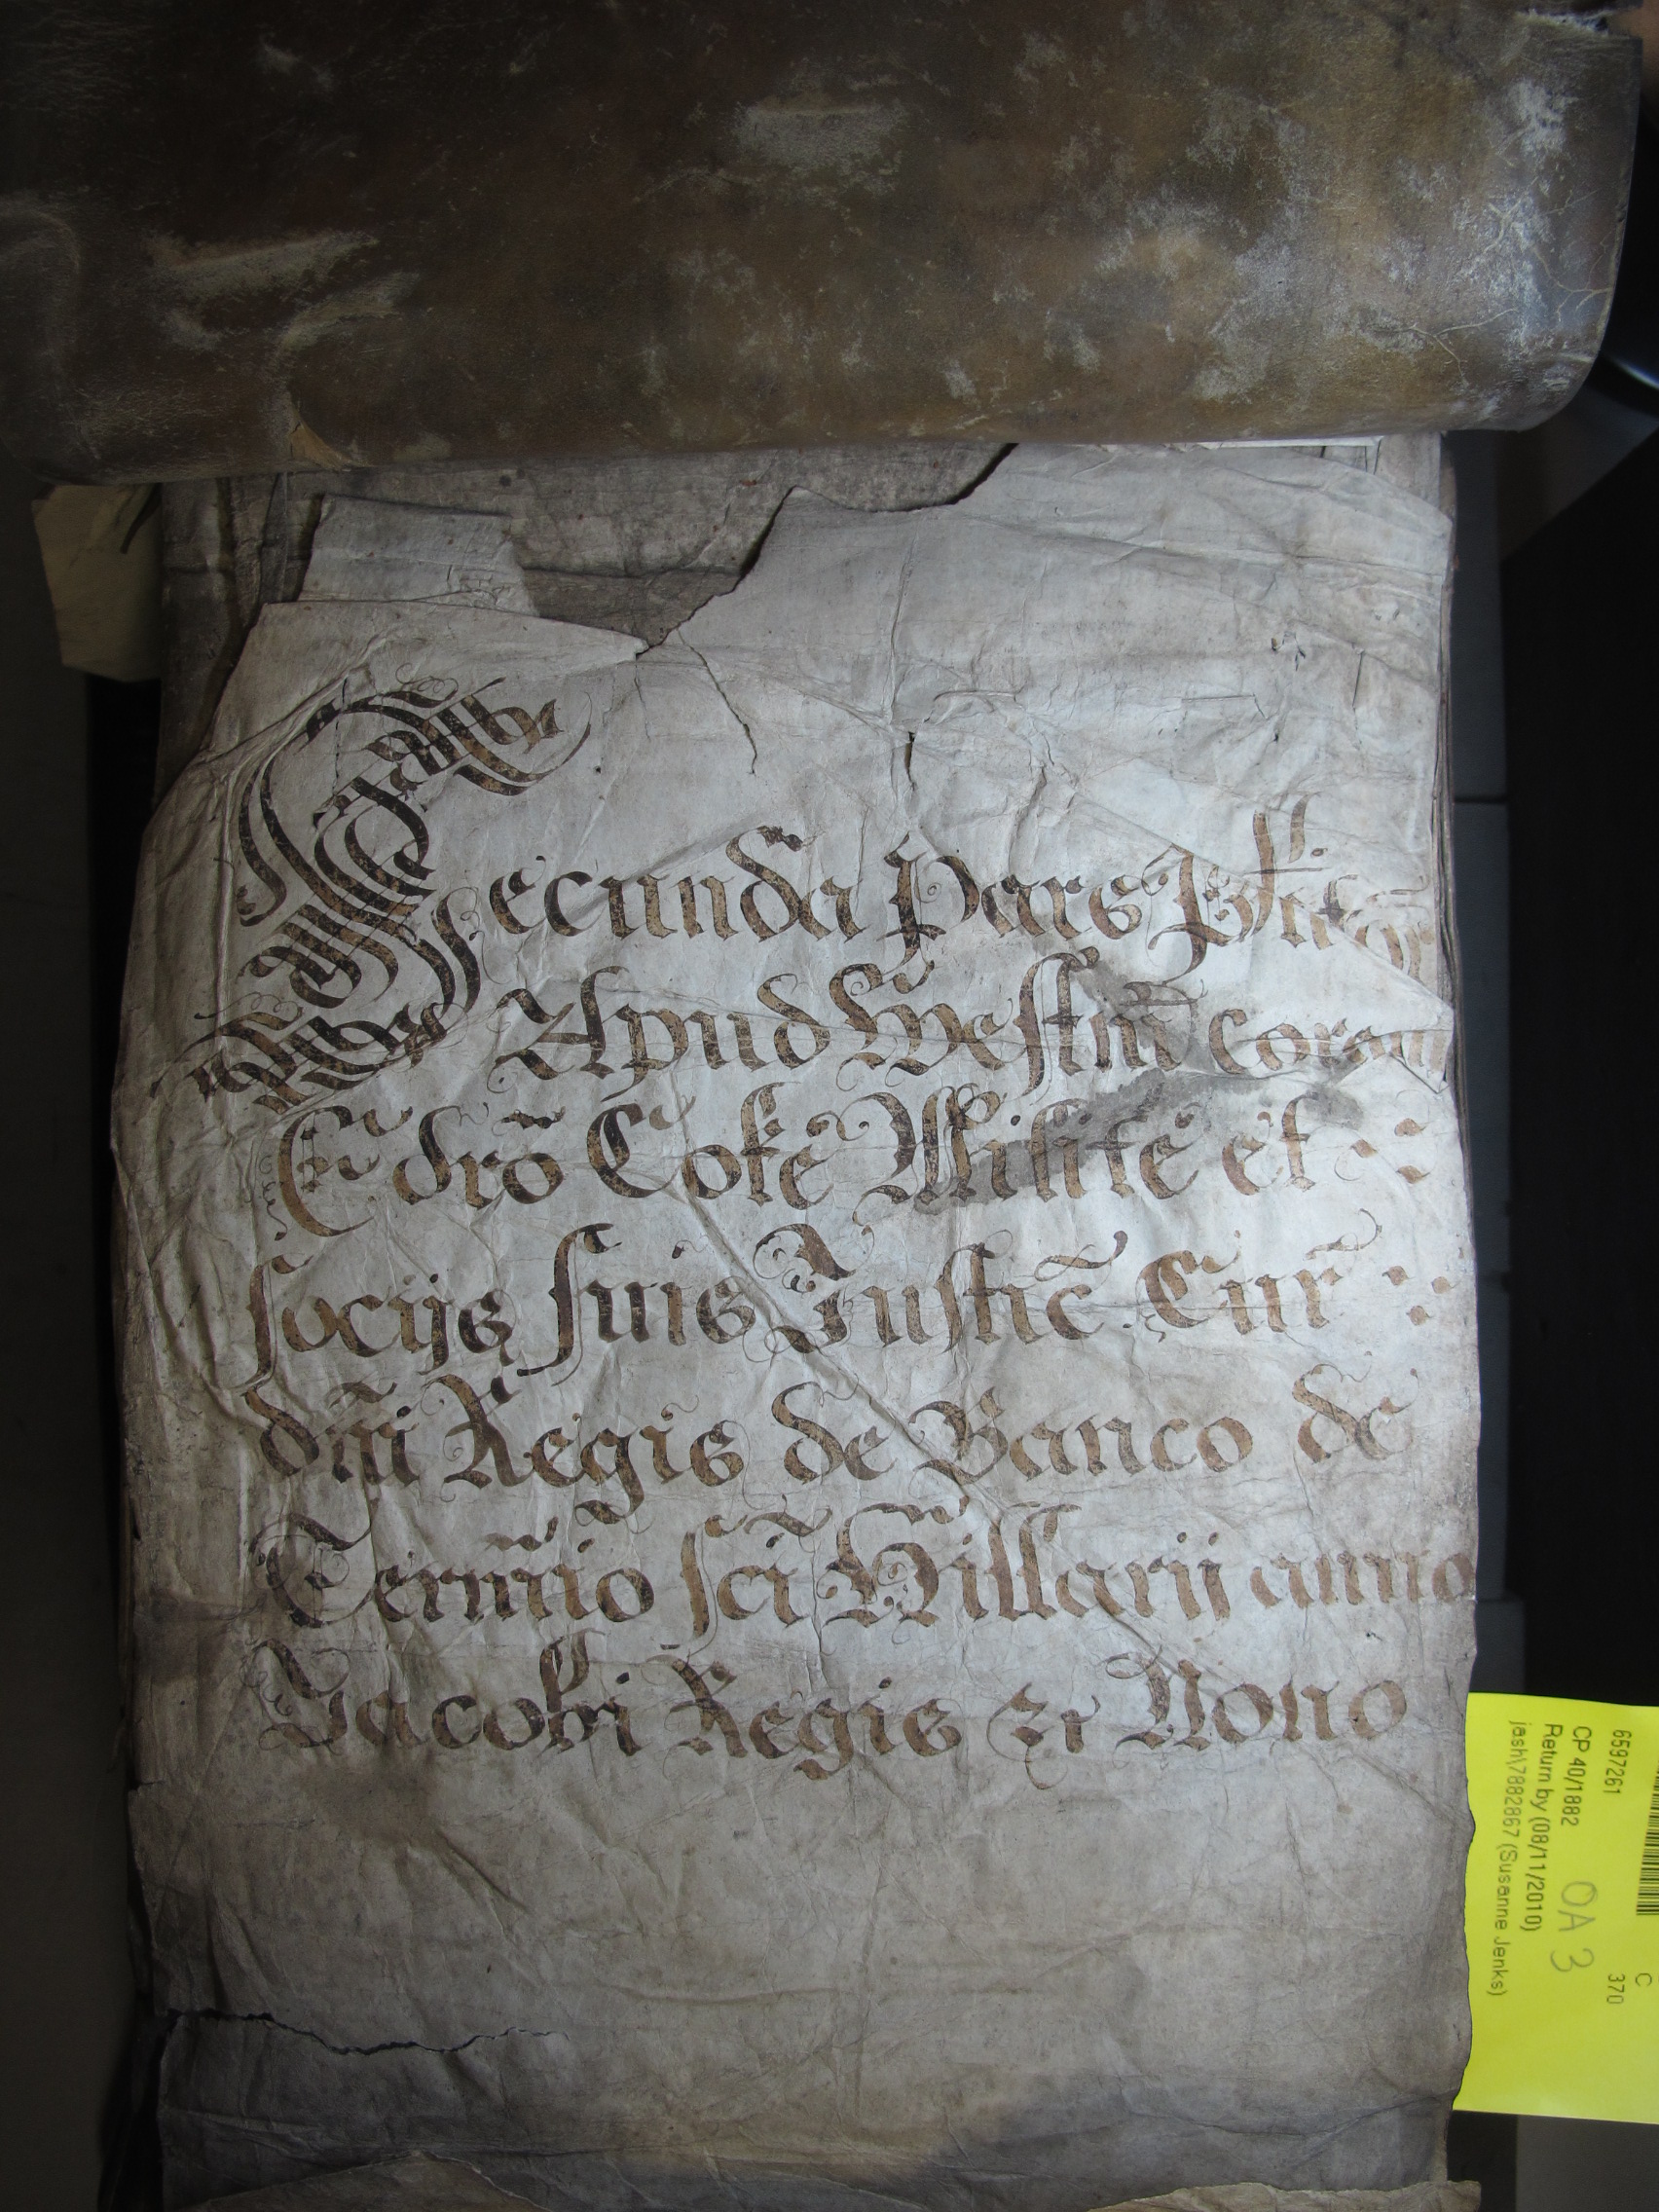 Secunda Pars Płitor
Apud Westm̃ coram
Edrõ Coke Milite et
socijs suis Justic̃ Cur̃
dñi Regis de Banco de
Termĩo scĩ Hillarij anno
Jacobi Regis &c Nono
6597261 C 370
CP 40/1882 OA 3
Return by (08/11/2010)
jash\7882867 (Susanne Jenks)